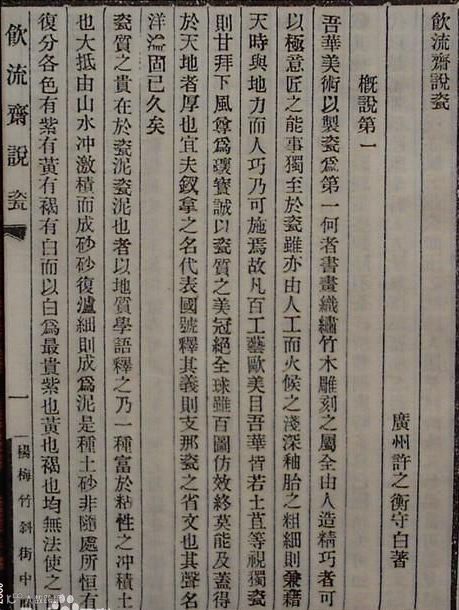 飲流齋說瓷
廣州許之衡守白著
概說第一
吾華美術以製瓷爲第一何者書畫織繡竹木雕刻之屬全由人造精巧者可
以極意匠之能事獨至於瓷雖亦由人工而火候之淺深釉胎之粗細則兼藉
天時與地力而人巧乃可施焉故凡百工藝歐美目吾華皆若土苴等視獨瓷
則甘拜下風尊爲瓌寶誠以瓷質之美冠絕全球雖百圖仿效終莫能及蓋得
於天地者厚也宜夫釵拿之名代表國號釋其義則支那瓷之省文也其聲名
洋溢固已久矣
瓷質之貴在於瓷泥瓷泥也者以地質學語釋之乃一種富於粘性之冲積土
也大抵由山水冲激積而成砂砂復瀘細則成爲泥是種土砂非隨處所恒有
復分各色有紫有黃有褐有白而以白爲最貴紫也黃也褐也均無法使之
飲流齋說瓷
一
楊梅竹斜街中